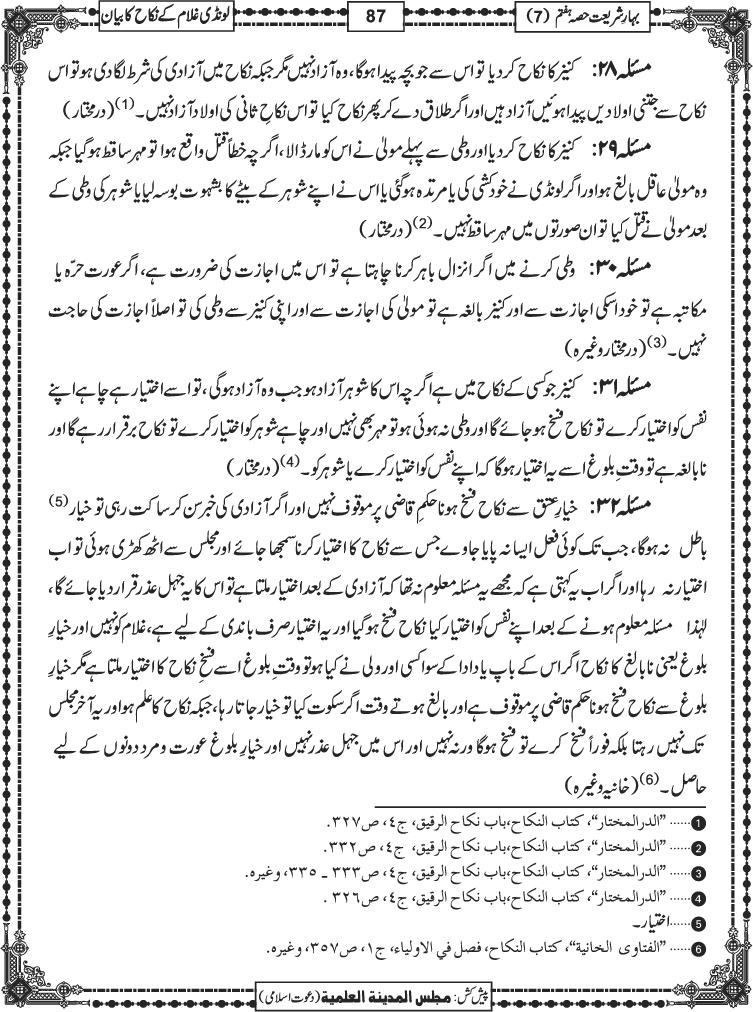 بہارِ شریعت حصہ ہفتم (7)
87
لونڈی غلام کے نکاح کا بیان
مسئلہ ۲۸: کنیز کا نکاح کر دیا تو اس سے جو بچہ پیدا ہوگا، وہ آزاد نہیں مگر جبکہ نکاح میں آزادی کی شرط لگا دی ہو تو اس
نکاح سے جتنی اولادیں پیدا ہوئیں آزاد ہیں اور اگر طلاق دے کر پھر نکاح کیا تو اس نکاحِ ثانی کی اولاد آزاد نہیں۔(1) (درمختار)
مسئلہ ۲۹: کنیز کا نکاح کر دیا اور وطی سے پہلے مولیٰ نے اس کو مار ڈالا، اگرچہ خطأً قتل واقع ہوا تو مہر ساقط ہوگیا جبکہ
وہ مولیٰ عاقل بالغ ہو اور اگر لونڈی نے خودکشی کی یا مرتدہ ہوگئی یا اس نے اپنے شوہر کے بیٹے کا بشہوت بوسہ لیا یا شوہر کی وطی کے
بعد مولیٰ نے قتل کیا تو ان صورتوں میں مہر ساقط نہیں۔(2) (درمختار)
مسئلہ ۳۰: وطی کرنے میں اگر انزال باہر کرنا چاہتا ہے تو اس میں اجازت کی ضرورت ہے، اگر عورت حرّہ یا
مکاتبہ ہے تو خود اسکی اجازت سے اور کنیز بالغہ ہے تو مولیٰ کی اجازت سے اور اپنی کنیز سے وطی کی تو اصلاً اجازت کی حاجت
نہیں۔(3) (درمختار وغیرہ)
مسئلہ ۳۱: کنیز جو کسی کے نکاح میں ہے اگرچہ اس کا شوہر آزاد ہو جب وہ آزاد ہوگی، تو اسے اختیار ہے چاہے اپنے
نفس کو اختیار کرے تو نکاح فسخ ہو جائے گا اور وطی نہ ہوئی ہو تو مہر بھی نہیں اور چاہے شوہر کو اختیار کرے تو نکاح برقرار رہے گا اور
نابالغہ ہے تو وقتِ بلوغ اسے یہ اختیار ہوگا کہ اپنے نفس کو اختیار کرے یا شوہر کو۔(4) (درمختار)
مسئلہ ۳۲: خیارِ عتق سے نکاح فسخ ہونا حکمِ قاضی پر موقوف نہیں اور اگر آزادی کی خبر سن کر ساکت رہی تو خیار(5)
باطل نہ ہوگا، جب تک کوئی فعل ایسا نہ پایا جاوے جس سے نکاح کا اختیار کرنا سمجھا جائے اور مجلس سے اٹھ کھڑی ہوئی تو اب
اختیار نہ رہا اور اگر اب یہ کہتی ہے کہ مجھے یہ مسئلہ معلوم نہ تھا کہ آزادی کے بعد اختیار ملتا ہے تو اس کا یہ جہل عذر قرار دیا جائے گا،
لہٰذا مسئلہ معلوم ہونے کے بعد اپنے نفس کو اختیار کیا نکاح فسخ ہوگیا اور یہ اختیار صرف باندی کے لیے ہے، غلام کو نہیں اور خیارِ
بلوغ یعنی نابالغ کا نکاح اگر اس کے باپ یا دادا کے سوا کسی اور ولی نے کیا ہو تو وقتِ بلوغ اسے فسخِ نکاح کا اختیار ملتا ہے مگر خیارِ
بلوغ سے نکاح فسخ ہونا حکم قاضی پر موقوف ہے اور بالغ ہوتے وقت اگر سکوت کیا تو خیار جاتا رہا، جبکہ نکاح کا علم ہو اور یہ آخر مجلس
تک نہیں رہتا بلکہ فوراً فسخ کرے تو فسخ ہوگا ورنہ نہیں اور اس میں جہل عذر نہیں اور خیارِ بلوغ عورت و مرد دونوں کے لیے
حاصل۔(6) (خانیہ وغیرہ)
1 ...... "الدرالمختار"، کتاب النکاح، باب نکاح الرقیق، ج٤، ص٣٢٧.
2 ...... "الدرالمختار"، کتاب النکاح، باب نکاح الرقیق، ج٤، ص٣٣٢.
3 ...... "الدرالمختار"، کتاب النکاح، باب نکاح الرقیق، ج٤، ص٣٣٣ ـ ٣٣٥، وغیرہ.
4 ...... "الدرالمختار"، کتاب النکاح، باب نکاح الرقیق، ج٤، ص٣٢٦.
5 ......اختیار۔
6 ...... "الفتاوی الخانیة"، کتاب النکاح، فصل في الاولیاء، ج١، ص٣٥٧، وغیرہ.
پیش کش: مجلس المدینة العلمیة (دعوت اسلامی)